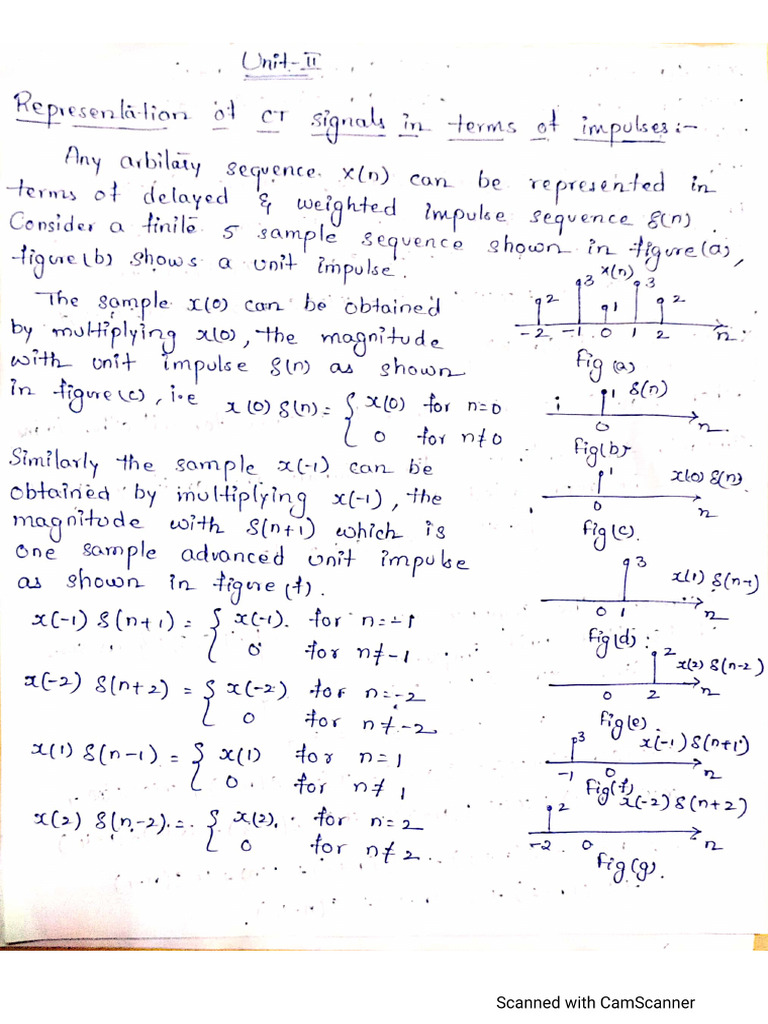 Unit-II
Representation of CT signals in terms of impulses:-
Any arbitary sequence x(n) can be represented in
terms of delayed & weighted impulse sequence δ(n).
Consider a finite 5 sample sequence shown in figure(a),
figure(b) shows a unit impulse.
The sample x(0) can be obtained
by multiplying x(0), the magnitude
with unit impulse δ(n) as shown
in figure(c), i.e x(0) δ(n) = { x(0) for n=0
0 for n≠0
Similarly the sample x(-1) can be
obtained by multiplying x(-1), the
magnitude with δ(n+1) which is
one sample advanced unit impulse
as shown in figure(f).
x(-1) δ(n+1) = { x(-1). for n=-1
0 for n≠-1
x(-2) δ(n+2) = { x(-2) for n=-2
0 for n≠-2
x(1) δ(n-1) = { x(1) for n=1
0. for n≠1
x(2) δ(n-2) = { x(2). for n=2
0 for n≠2
x(n)
2 3 1 3 2
-2 -1 0 1 2 n
Fig(a)
1 δ(n)
0 n
Fig(b)
1 x(0) δ(n)
0 n
Fig(c).
3 x(1) δ(n-1)
0 1 n
Fig(d)
2 x(2) δ(n-2)
0 2 n
Fig(e)
3 x(-1) δ(n+1)
-1 0 n
Fig(f)
2 x(-2) δ(n+2)
-2 0 n
Fig(g).
Scanned with CamScanner